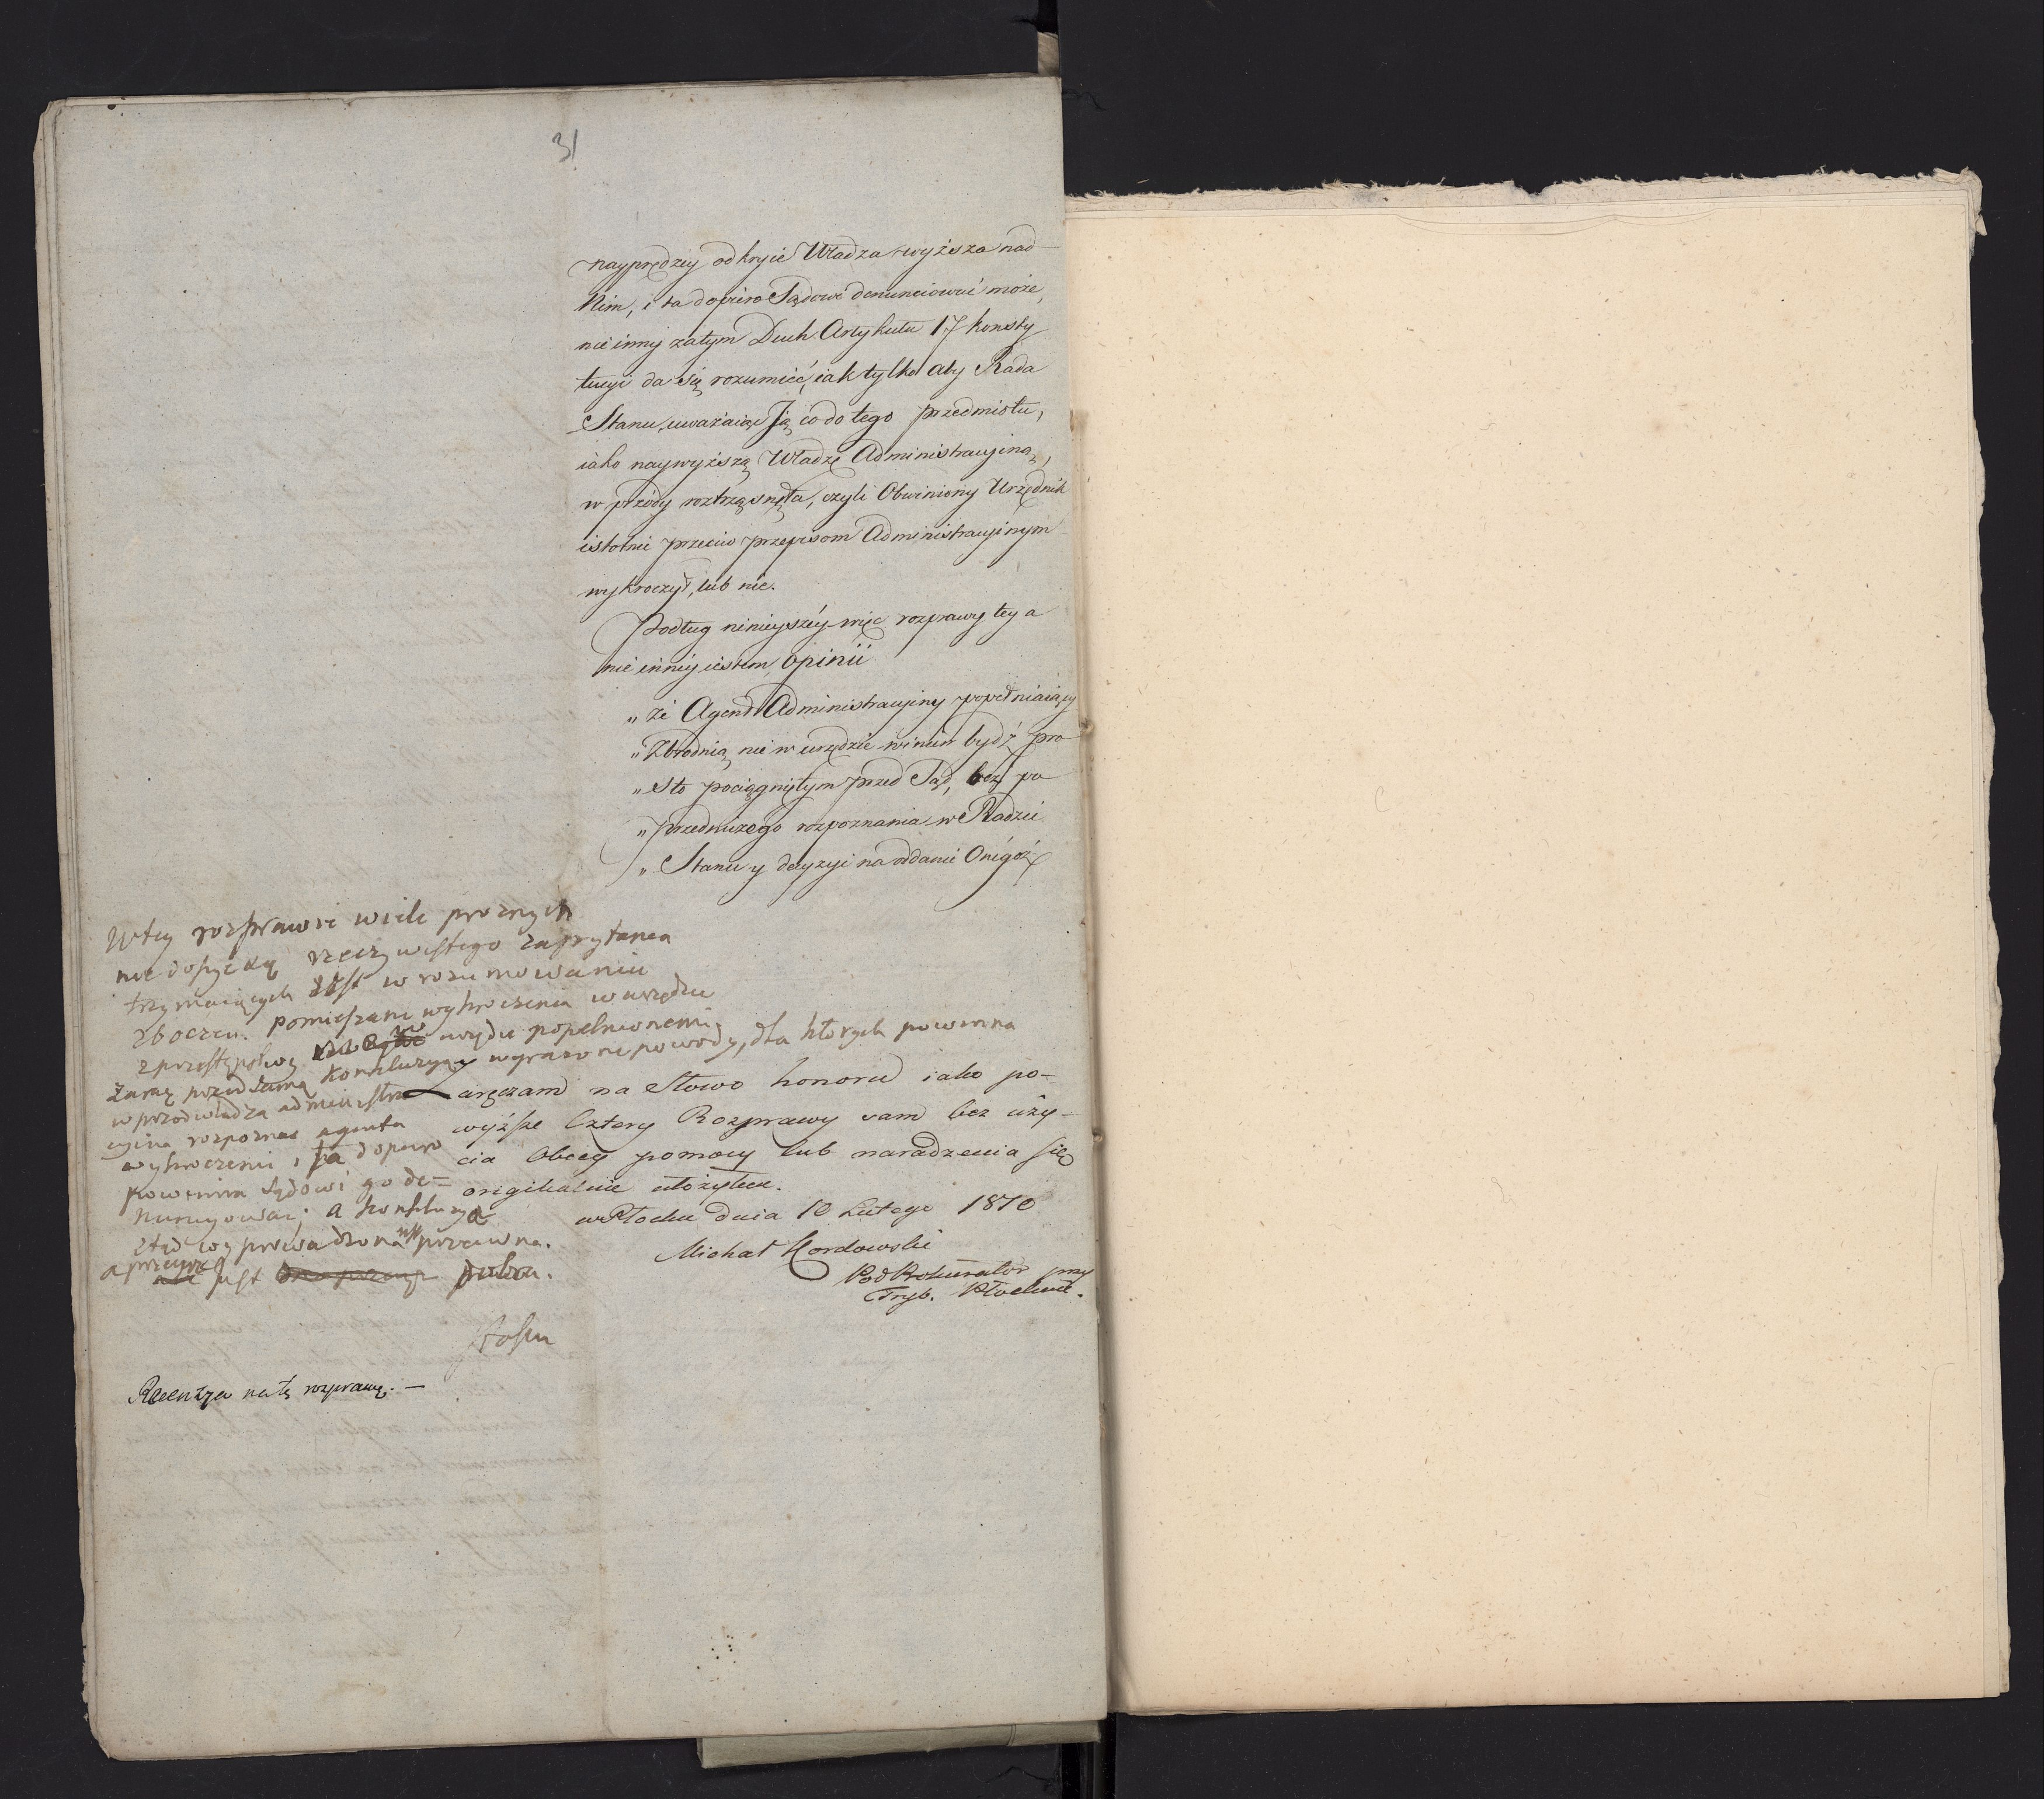 31
nayprędzey odkryie Władza wyższa nad
Nim, i ta dopiero Sądowi denunciować może,
nie inny zatym Duch Artykułu 17 konsty
tucyi da się rozumieć, iak tylko aby Rada
Stanu, uważaiąc Ją co do tego przedmiotu,
iako naywyższą Władzę Administracyiną,
w przódy roztrząsnęła, czyli Obwiniony Urzędnik
istotnie przeciw przepisom Administracyinym
wykroczył, lub nie.
Podług ninieyszéy więc rozprawy tey a
nie inney iestem opinii
„ że Agent Administracyiny popełniaiący
„ Zbrodnią nie w urzędzie winien bydź pro
„ sto pociągniętym przed Sąd, bez po
„ przedniczego rozpoznania w Radzie
„ Stanu y decyzyi na oddanie Onégoż
W tey rozprawie wiele proznych
nie dosyć się rzeczywistego zapytania
trzymaiących iest w rozumowaniu
zboczeń. Pomieszane wykroczenia w urzędzie
z przestępstwy w urzędzie popełnionemi,
zaraz przed samą konkluzyą wyrażone powody, dla których powinna
w przód władza administra
cyina rozpoznać agenta
wykroczenie, i ta dopiero
powinna Sądowi go de=
nuncyować; a konkluzya
ztąd wyprowadzona iest przeciwna.
a przecież iest dobra.
Zaręczam na Słowo honoru iako po-
wyższe Cztery Rozprawy sam bez uży-
cia Obcey pomocy lub naradzenia się
originalnie ułożyłem.
w Płocku dnia 10 Lutego 1810
Michał Kordowski
PodProkurator przy
Tryb. Płockim.
Recenzya na tę rozprawę. —